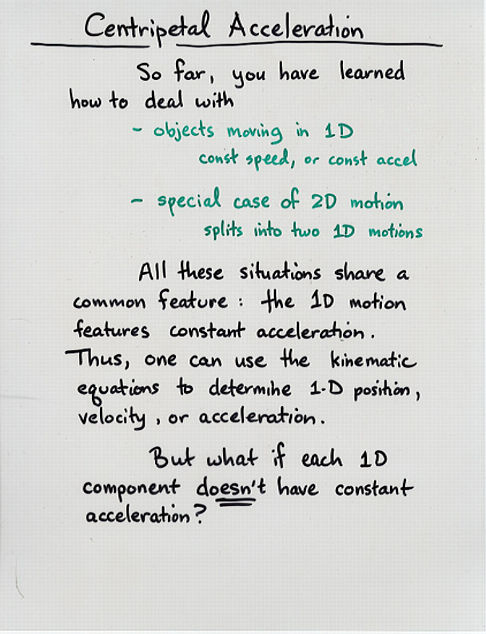 Centripetal Acceleration
So far, you have learned
how to deal with
- objects moving in 1D
const speed, or const accel
- special case of 2D motion
splits into two 1D motions
All these situations share a
common feature : the 1D motion
features constant acceleration.
Thus, one can use the kinematic
equations to determine 1-D position,
velocity, or acceleration.
But what if each 1D
component doesn't have constant
acceleration?